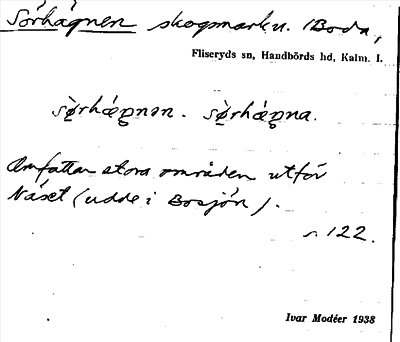 Sörhágnen skogsmark u. Boda,
Fliseryds sn, Handbörds hd, Kalm. l.
sø̀rhágnən. sø̀rhágna.
Omfattar stora områden utför
Näset (udde i Bosjön).
s. 122.
Ivar Modéer 1938